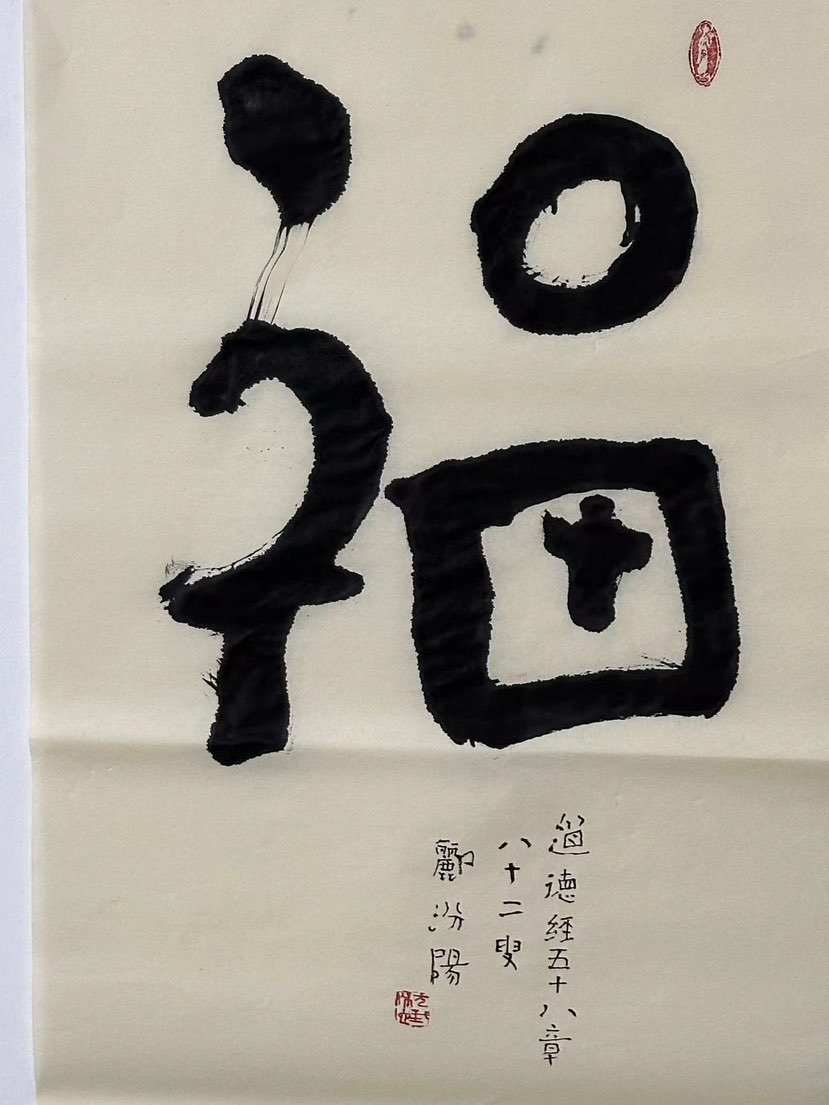 福
道德經五十八章
八十二叟
酈汾陽